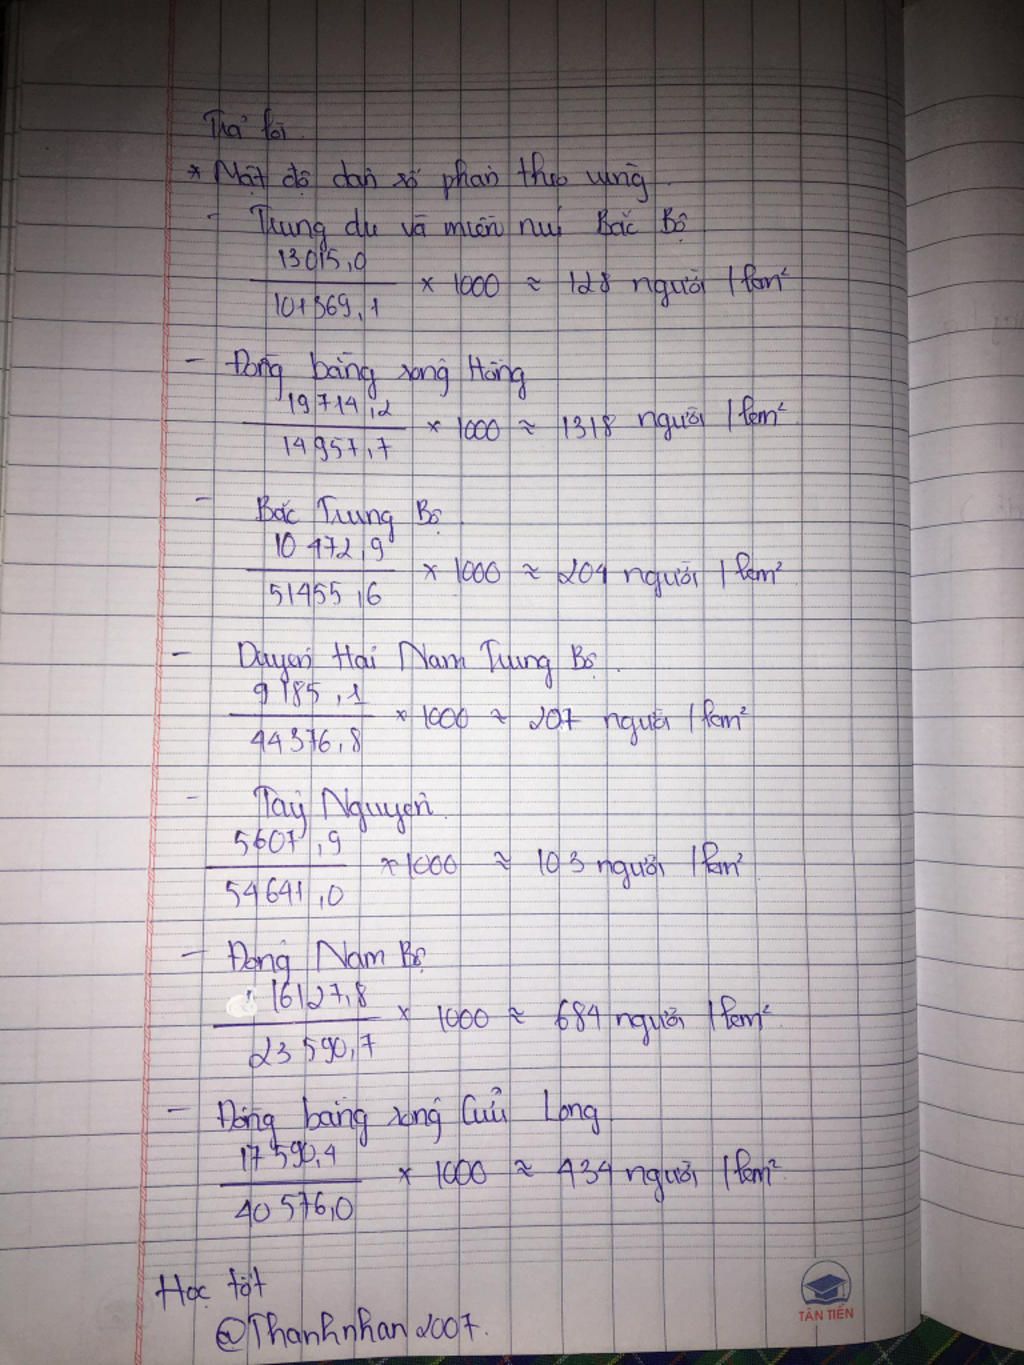 Trả lời.
* Mật độ dân số phân theo vùng.
- Trung du và miền núi Bắc Bộ
13015,0
101369,1
× 1000 ≈ 128 người / km²
- Đồng bằng sông Hồng
19714,2
14957,7
× 1000 ≈ 1318 người / km²
- Bắc Trung Bộ.
10 472,9
51455,6
× 1000 ≈ 204 người / km²
- Duyên Hải Nam Trung Bộ.
9 185,1
44376,8
× 1000 ≈ 207 người / km²
- Tây Nguyên.
5607,9
54641,0
× 1000 ≈ 103 người / km²
- Đông Nam Bộ
16127,8
23 590,7
× 1000 ≈ 684 người / km²
- Đồng bằng sông Cửu Long
17 590,4
40 576,0
× 1000 ≈ 434 người / km²
Học tốt
@Thanhnhan2007.
TÂN TIẾN